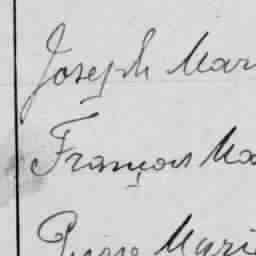 Joseph Mar
François Ma
Pierre Marie